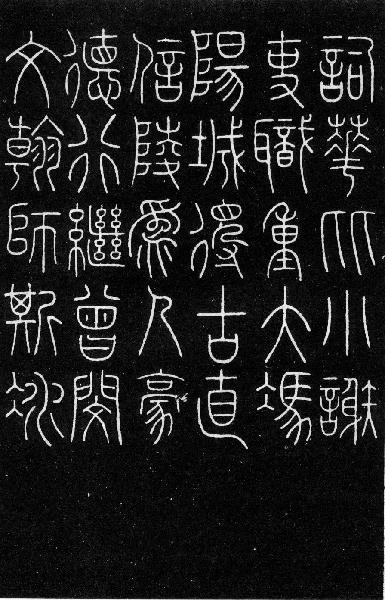 詞華比小謝
吏職重大馮
陽城得古直
信陵為人豪
德行繼曾閔
文翰師斯冰